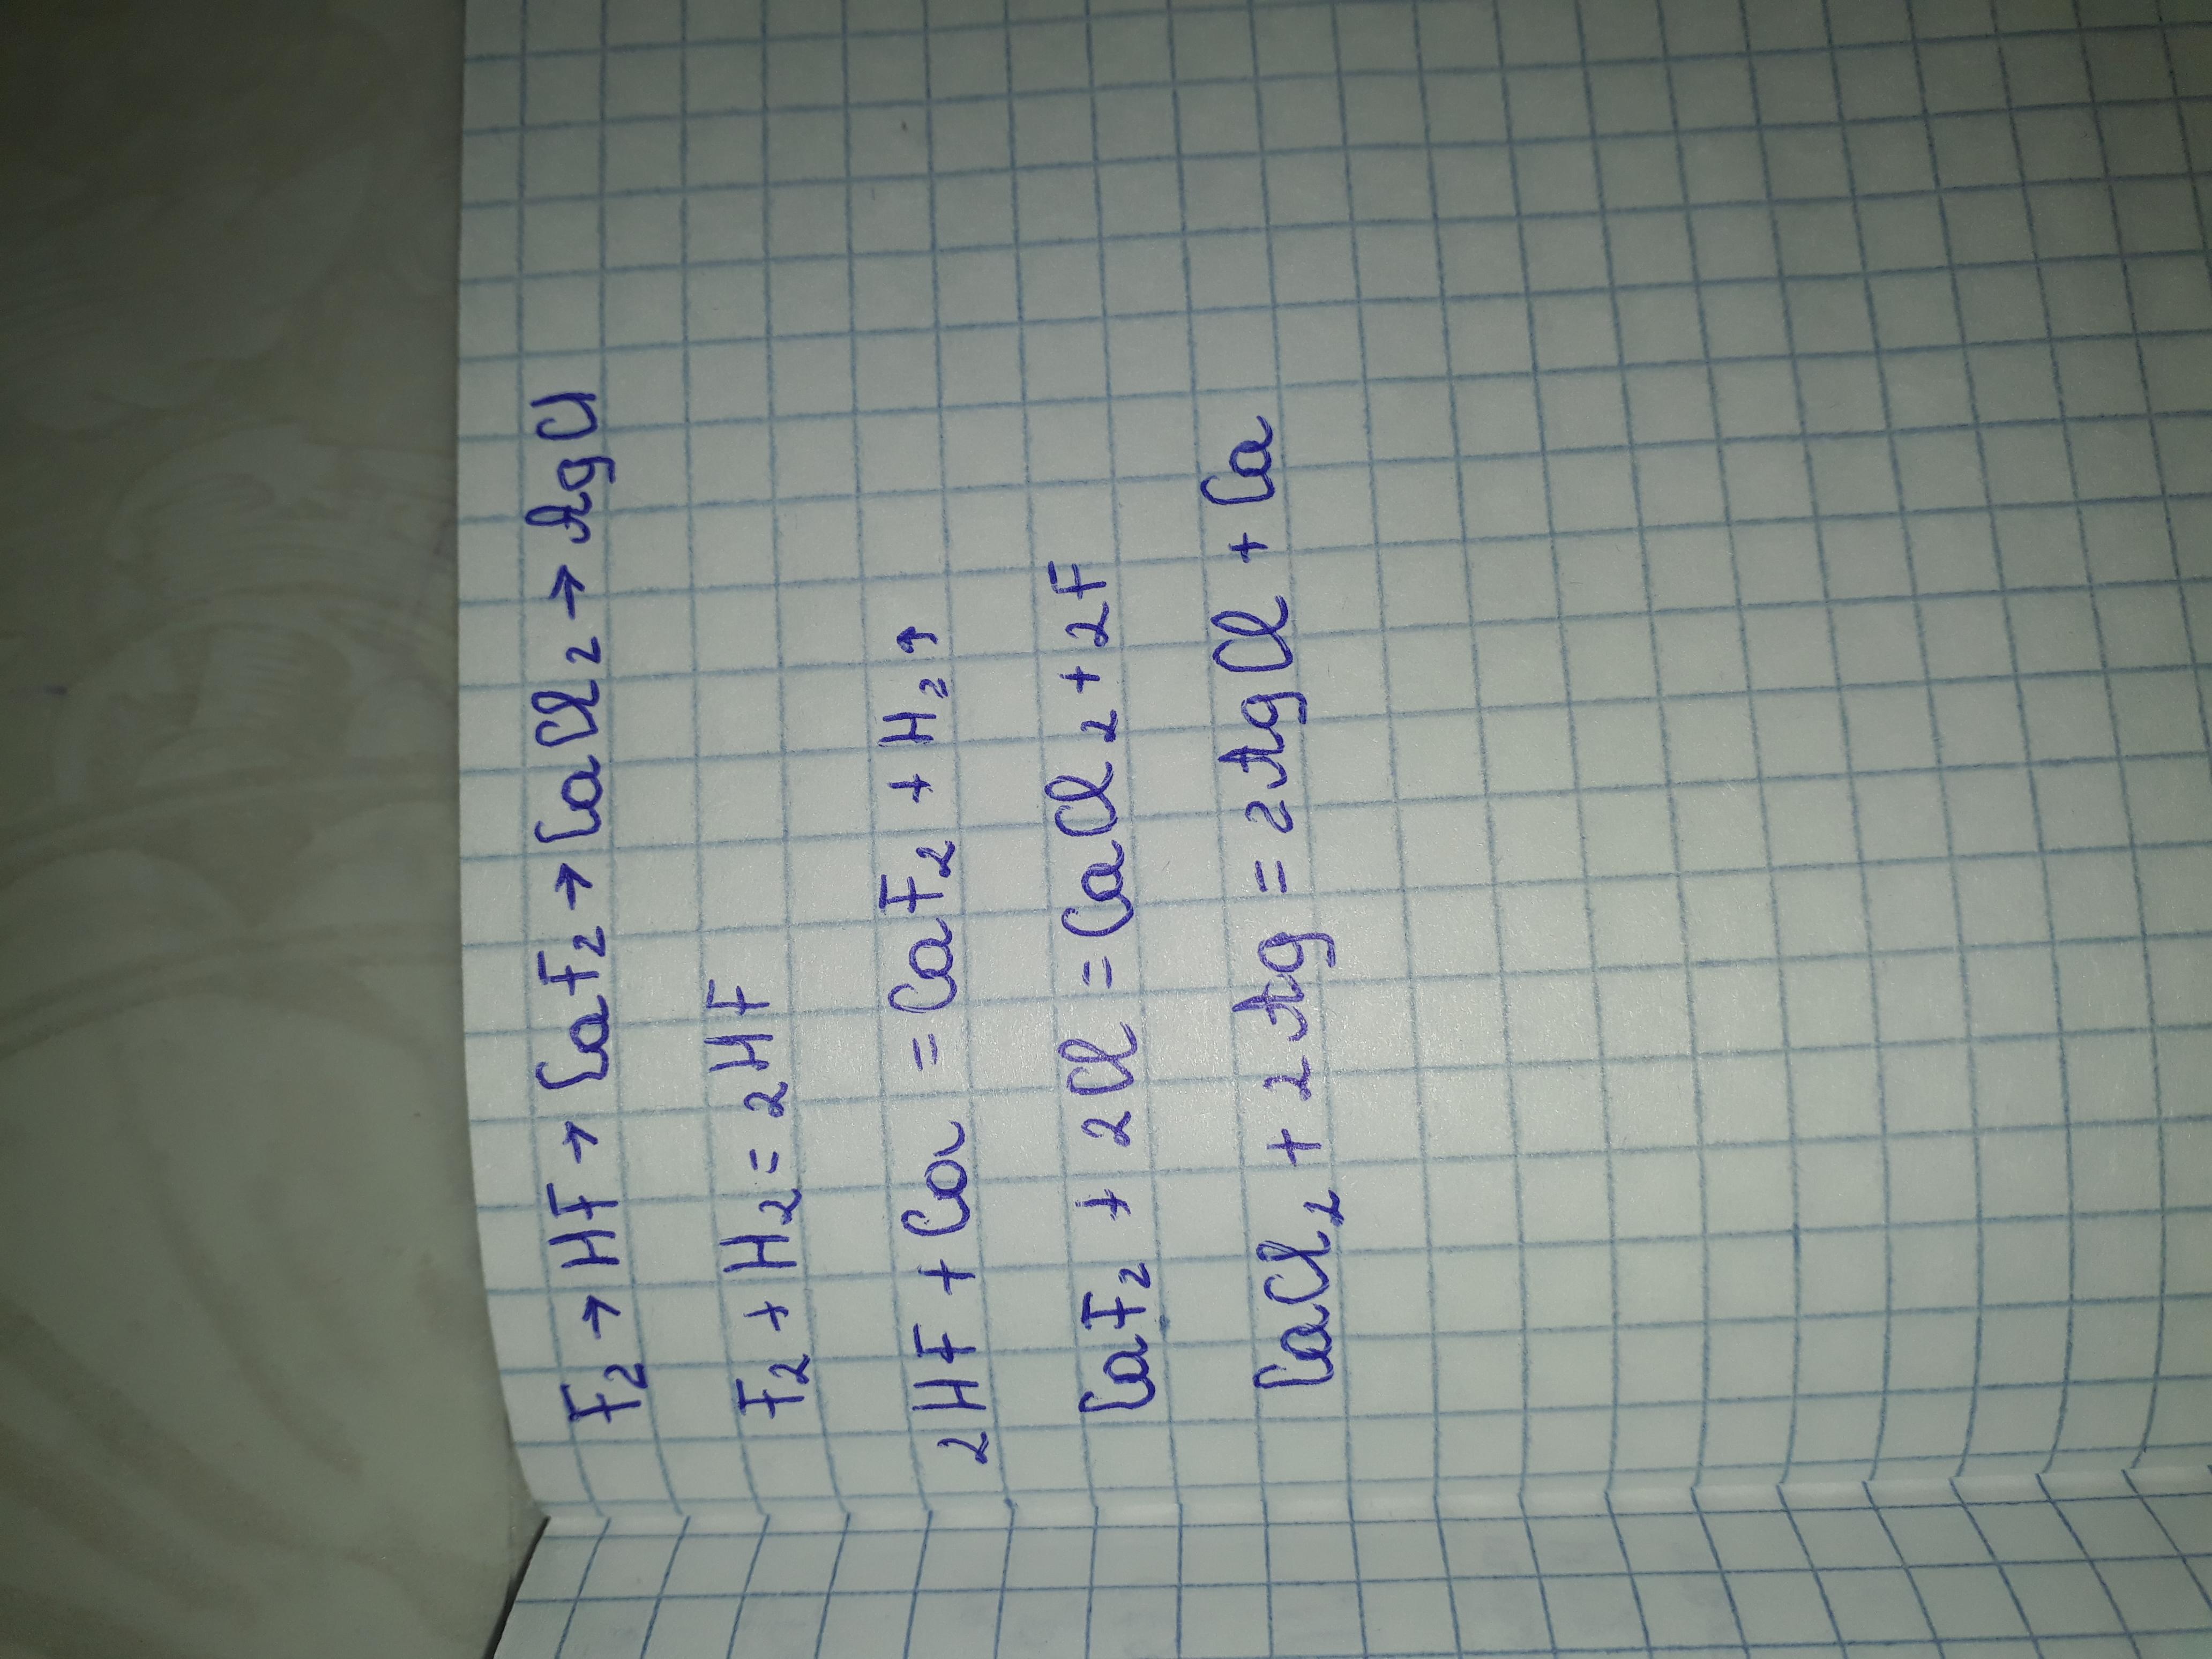 F₂ → HF → CaF₂ → CaCl₂ → AgCl
F₂ + H₂ = 2HF
2HF + Ca = CaF₂ + H₂↑
CaF₂ + 2Cl = CaCl₂ + 2F
CaCl₂ + 2Ag = 2AgCl + Ca